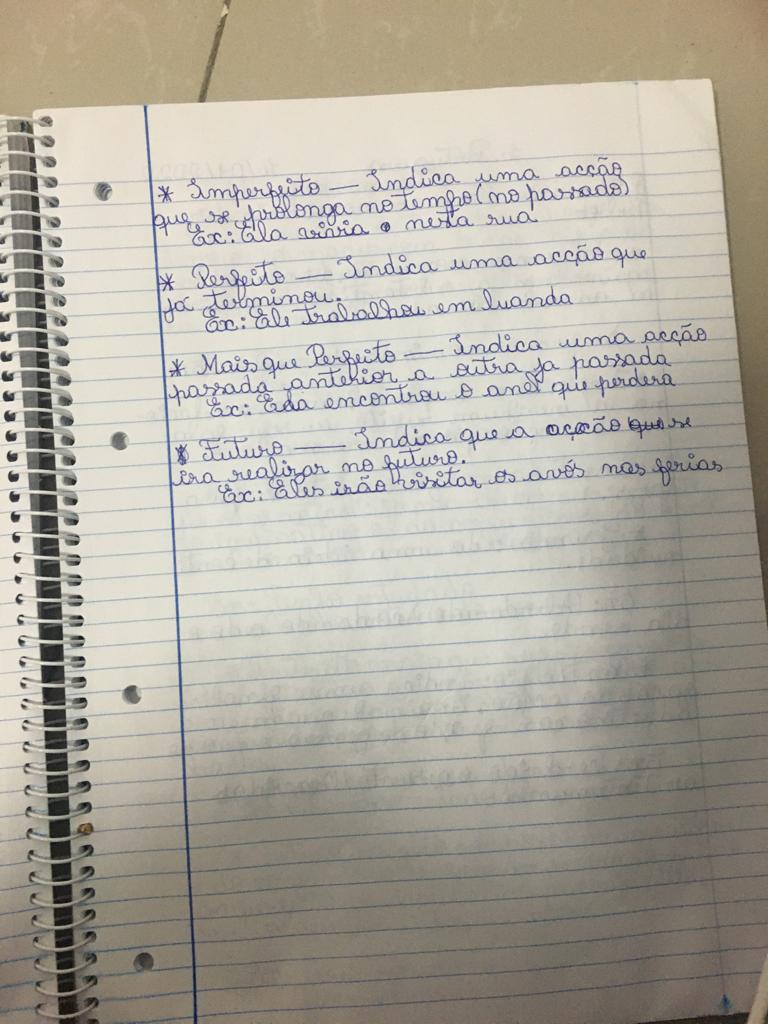 * Imperfeito — Indica uma acção
que se prolonga no tempo (no passado)
Ex: Ela vivia nesta rua
* Perfeito — Indica uma acção que
ja terminou.
Ex: Ele trabalhou em luanda
* Mais que Perfeito — Indica uma acção
passada anterior a outra ja passada
Ex: Ela encontrou o anel que perdera
* Futuro — Indica que a acção que se
ira realizar no futuro.
Ex: Eles irão visitar os avós nas ferias